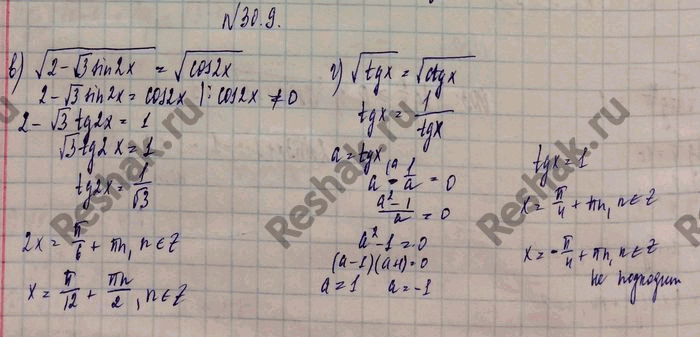 №30.9.
в) √(2-√3 sin2x) = √(cos2x)
2-√3 sin2x = cos2x |: cos2x ≠ 0
2-√3 tg2x = 1
√3 tg2x = 1
tg2x = 1/√3
2x = π/6 + πn, n∈Z
x = π/12 + πn/2, n∈Z
г) √(tgx) = √(ctgx)
tgx = 1/tgx
a = tgx
a - 1/a = 0
(a²-1)/a = 0
a²-1 = 0
(a-1)(a+1) = 0
a = 1 a = -1
tgx = 1
x = π/4 + πn, n∈Z
x = -π/4 + πn, n∈Z
не подходит
Reshak.ru
Reshak.ru
Reshak.ru